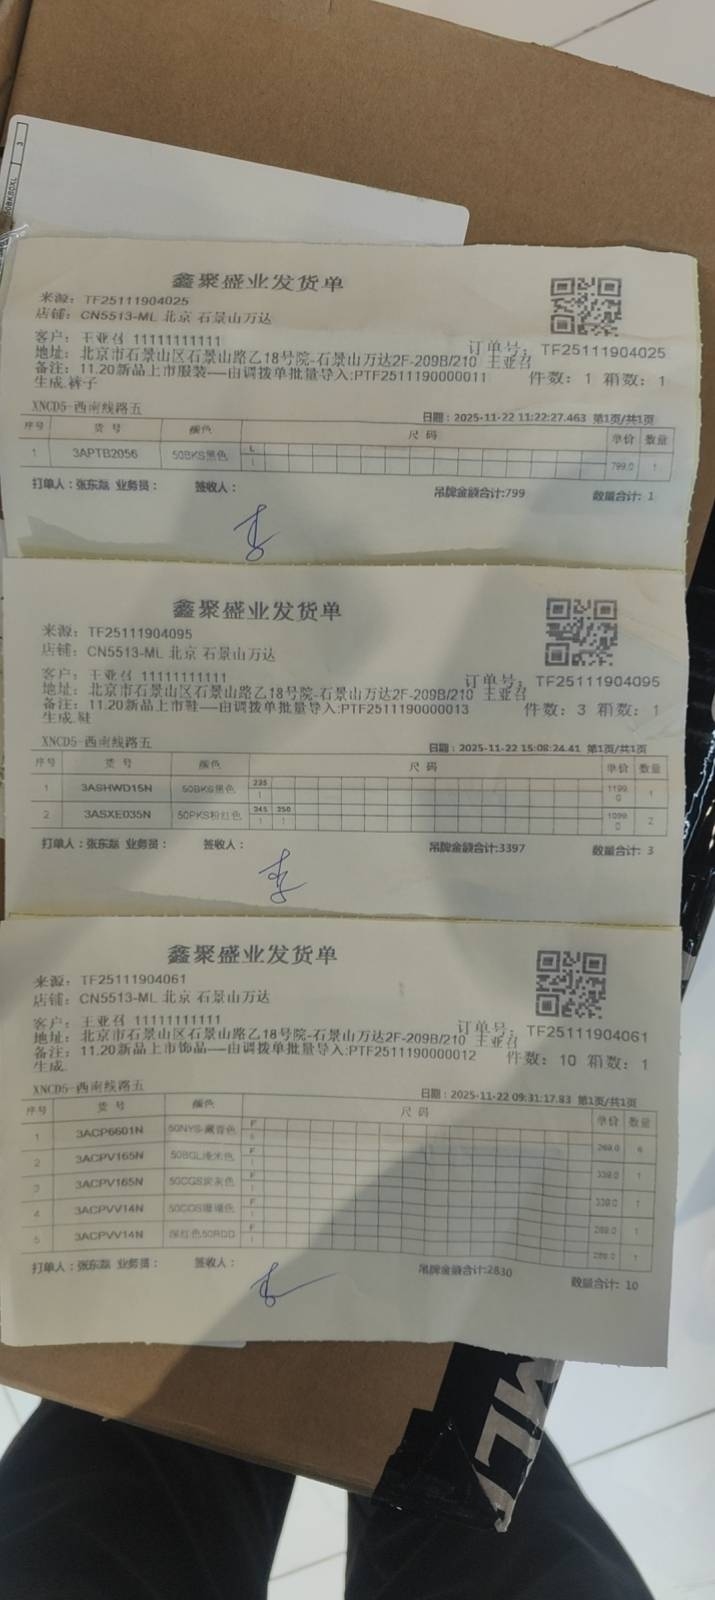 鑫聚盛业发货单
来源: TF25111904025
店铺: CN5513-ML 北京 石景山万达
客户: 王亚召 11111111111
订单号: TF25111904025
地址: 北京市石景山区石景山路乙18号院-石景山万达2F-209B/210 王亚召
备注: 11.20新品上市服装——由调拨单批量导入:PTF2511190000011 件数: 1 箱数: 1
生成.裤子
XNCD5-西南线路五
日期: 2025-11-22 11:22:27.463 第1页/共1页
序号 货号 颜色 尺码 单价 数量
1 3APTB2056 50BKS黑色 L 799.0 1
1
打单人: 张东磊 业务员: 签收人: 吊牌金额合计:799 数量合计: 1
鑫聚盛业发货单
来源: TF25111904095
店铺: CN5513-ML 北京 石景山万达
客户: 王亚召 11111111111
订单号: TF25111904095
地址: 北京市石景山区石景山路乙18号院-石景山万达2F-209B/210 王亚召
备注: 11.20新品上市鞋——由调拨单批量导入:PTF2511190000013 件数: 3 箱数: 1
生成.鞋
XNCD5-西南线路五
日期: 2025-11-22 15:08:24.41 第1页/共1页
序号 货号 颜色 尺码 单价 数量
1 3ASHWD15N 50BKS黑色 235 1199.0 1
1
2 3ASXE035N 50PKS粉红色 245 250 1099.0 2
1 1
打单人: 张东磊 业务员: 签收人: 吊牌金额合计:3397 数量合计: 3
鑫聚盛业发货单
来源: TF25111904061
店铺: CN5513-ML 北京 石景山万达
客户: 王亚召 11111111111
订单号: TF25111904061
地址: 北京市石景山区石景山路乙18号院-石景山万达2F-209B/210 王亚召
备注: 11.20新品上市饰品——由调拨单批量导入:PTF2511190000012 件数: 10 箱数: 1
生成.
XNCD5-西南线路五
日期: 2025-11-22 09:31:17.83 第1页/共1页
序号 货号 颜色 尺码 单价 数量
1 3ACP6601N 50NYS-藏青色 F 269.0 6
2 3ACPV165N 50BGL浅米色 F 339.0 1
3 3ACPV165N 50CGS炭灰色 F 339.0 1
4 3ACPVV14N 50COS珊瑚色 F 269.0 1
5 3ACPVV14N 深红色50RDD F 269.0 1
打单人: 张东磊 业务员: 签收人: 吊牌金额合计:2830 数量合计: 10